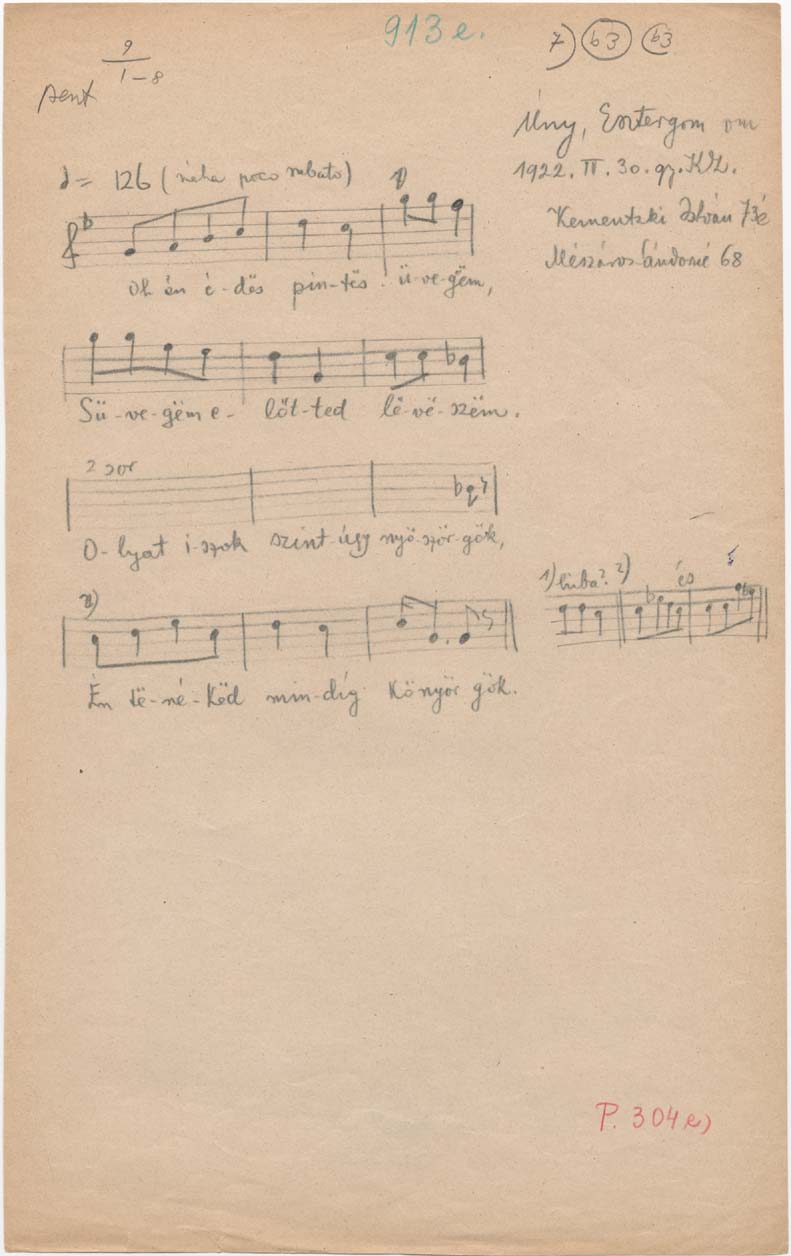 913 e.
7) b3 b3
9
1-8
pent
Úny, Esztergom vm
1922. IV. 30. gy. KZ.
Kementzki István 73é
Mészáros Sándorné 68
♩= 126 (néha poco rubato) 1)
Oh én é-dës pin-tës ü-ve-gëm,
Sü-ve-gëm e- lőt-ted lë-vë-szëm.
2 sor
O-lyat i-szok szint-úgy nyö-ször-gök,
2)
Én të-né-këd min-díg könyör gök.
1) hiba? 2) és
P. 304 e)